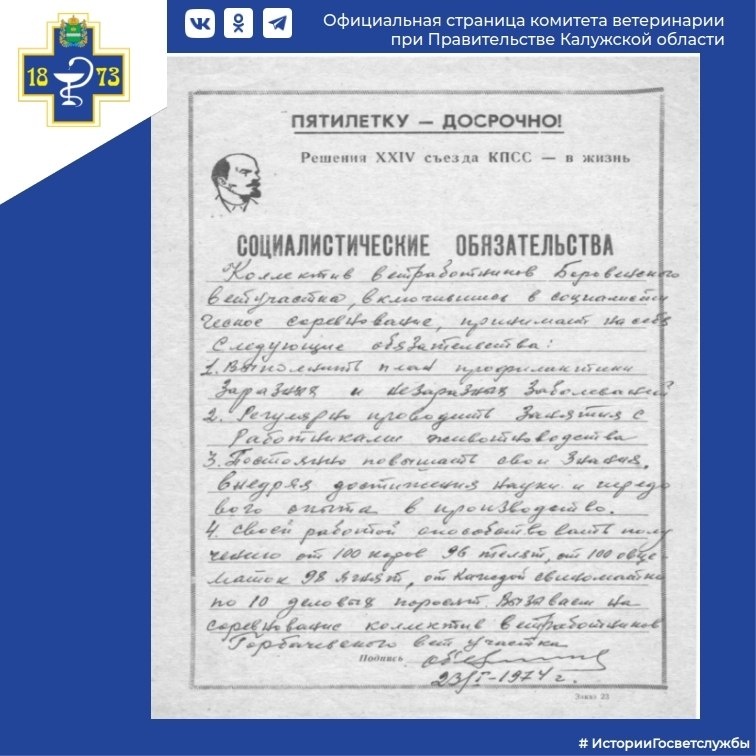 Официальная страница комитета ветеринарии
при Правительстве Калужской области
18 73
ПЯТИЛЕТКУ — ДОСРОЧНО!
Решения XXIV съезда КПСС — в жизнь
СОЦИАЛИСТИЧЕСКИЕ ОБЯЗАТЕЛЬСТВА
Коллектив ветработников
ветучастка, включившись в социалисти
ческое соревнование, принимает на себя
следующие обязательства:
1. Выполнить план профилактики
заразных и незаразных заболеваний
2. Регулярно проводить занятия с
работниками животноводства
3. Постоянно повышать свои знания,
внедряя достижения науки и передо
вого опыта в производство.
4. Своей работой способствовать полу
чению от 100 коров 96 телят, от 100 овце-
маток 98 ягнят, от каждой свиноматки
по 10 деловых поросят. Вызываем на
соревнование коллектив ветработников
Горбачевского вет участка
Подпись
23/I-1974 г.
Заказ 23
# ИсторииГосветслужбы